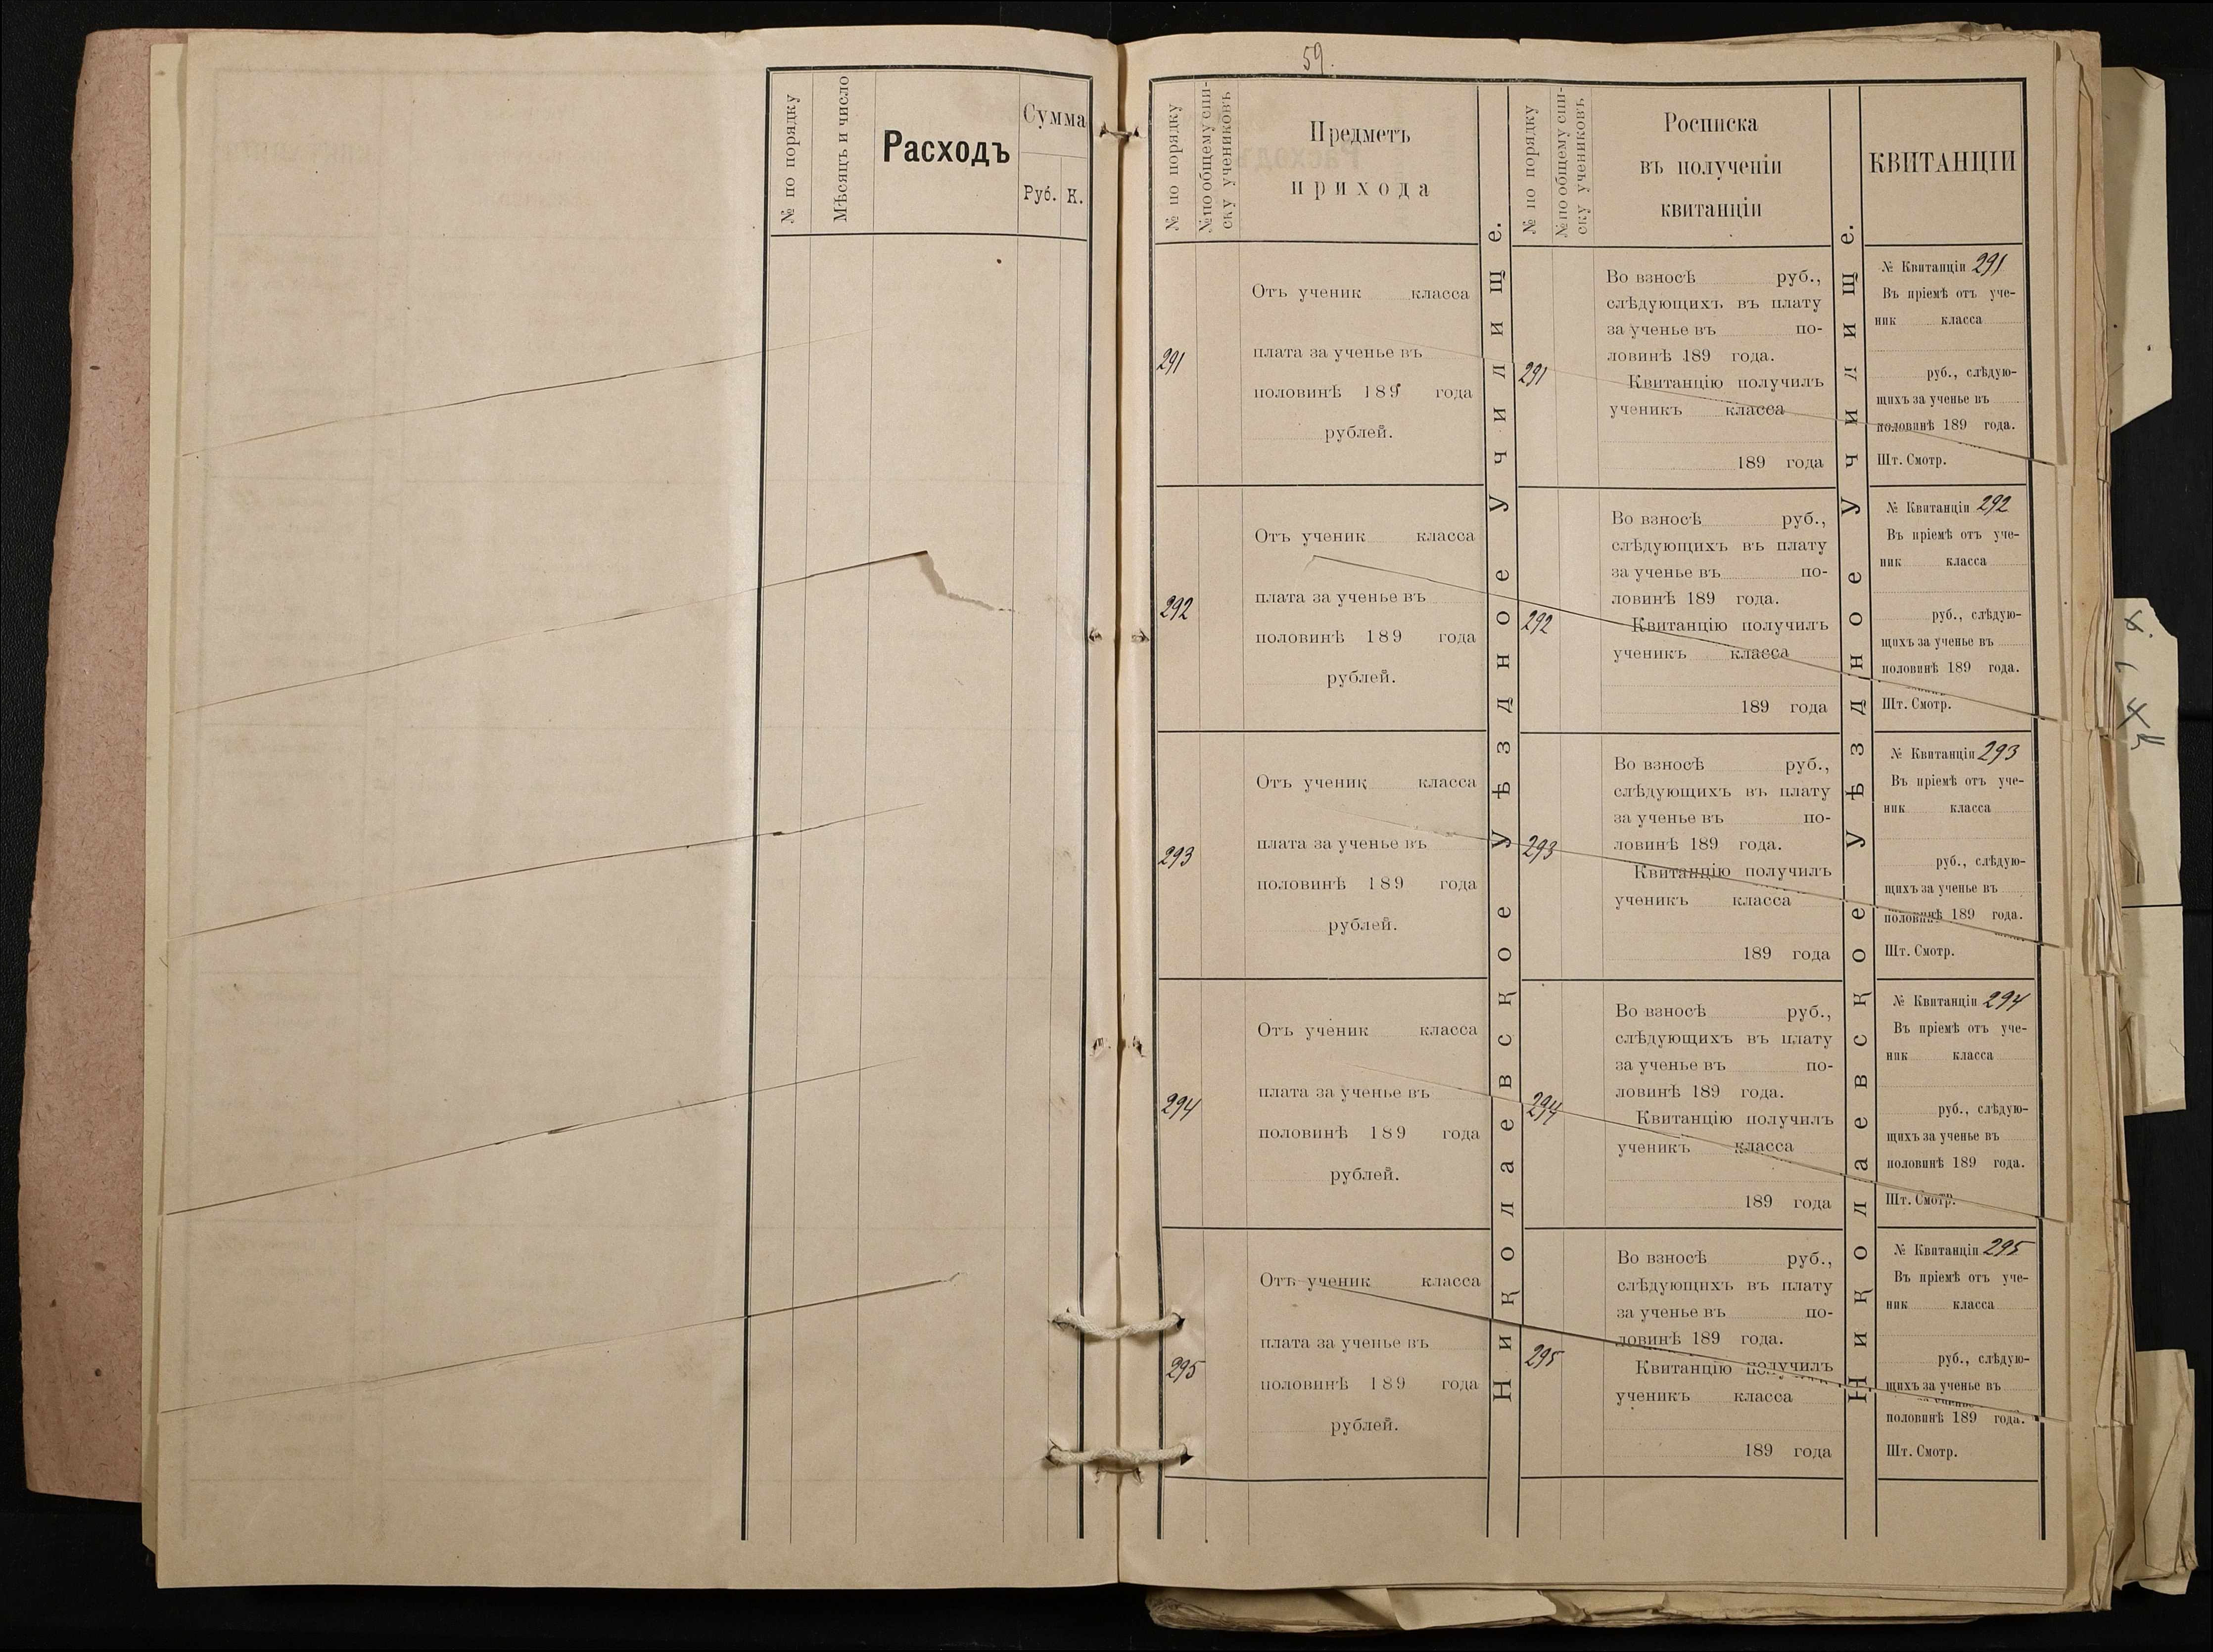 № по порядку
Мѣсяцъ и число
Расходъ
Сумма
Руб. К.
59.
№ по порядку
№ по общему спи-
ску учениковъ
Предметъ
прихода
№ по порядку
№ по общему спи-
ску учениковъ
Росписка
въ полученіи
квитанціи
КВИТАНЦІИ
Николаевское Уѣздное Училище.
Николаевское Уѣздное Училище.
291
Отъ ученик класса
плата за ученье въ
половинѣ 189 года
рублей.
291
Во взносѣ руб.,
слѣдующихъ въ плату
за ученье въ по-
ловинѣ 189 года.
Квитанцію получилъ
ученикъ класса
189 года
№ Квитанціи 291
Въ пріемѣ отъ уче-
ник класса
руб., слѣдую-
щихъ за ученье въ
половинѣ 189 года.
Шт. Смотр.
292
Отъ ученик класса
плата за ученье въ
половинѣ 189 года
рублей.
292
Во взносѣ руб.,
слѣдующихъ въ плату
за ученье въ по-
ловинѣ 189 года.
Квитанцію получилъ
ученикъ класса
189 года
№ Квитанціи 292
Въ пріемѣ отъ уче-
ник класса
руб., слѣдую-
щихъ за ученье въ
половинѣ 189 года.
Шт. Смотр.
293
Отъ ученик класса
плата за ученье въ
половинѣ 189 года
рублей.
293
Во взносѣ руб.,
слѣдующихъ въ плату
за ученье въ по-
ловинѣ 189 года.
Квитанцію получилъ
ученикъ класса
189 года
№ Квитанціи 293
Въ пріемѣ отъ уче-
ник класса
руб., слѣдую-
щихъ за ученье въ
половинѣ 189 года.
Шт. Смотр.
294
Отъ ученик класса
плата за ученье въ
половинѣ 189 года
рублей.
294
Во взносѣ руб.,
слѣдующихъ въ плату
за ученье въ по-
ловинѣ 189 года.
Квитанцію получилъ
ученикъ класса
189 года
№ Квитанціи 294
Въ пріемѣ отъ уче-
ник класса
руб., слѣдую-
щихъ за ученье въ
половинѣ 189 года.
Шт. Смотр.
295
Отъ ученик класса
плата за ученье въ
половинѣ 189 года
рублей.
295
Во взносѣ руб.,
слѣдующихъ въ плату
за ученье въ по-
ловинѣ 189 года.
Квитанцію получилъ
ученикъ класса
189 года
№ Квитанціи 295
Въ пріемѣ отъ уче-
ник класса
руб., слѣдую-
щихъ за ученье въ
половинѣ 189 года.
Шт. Смотр.